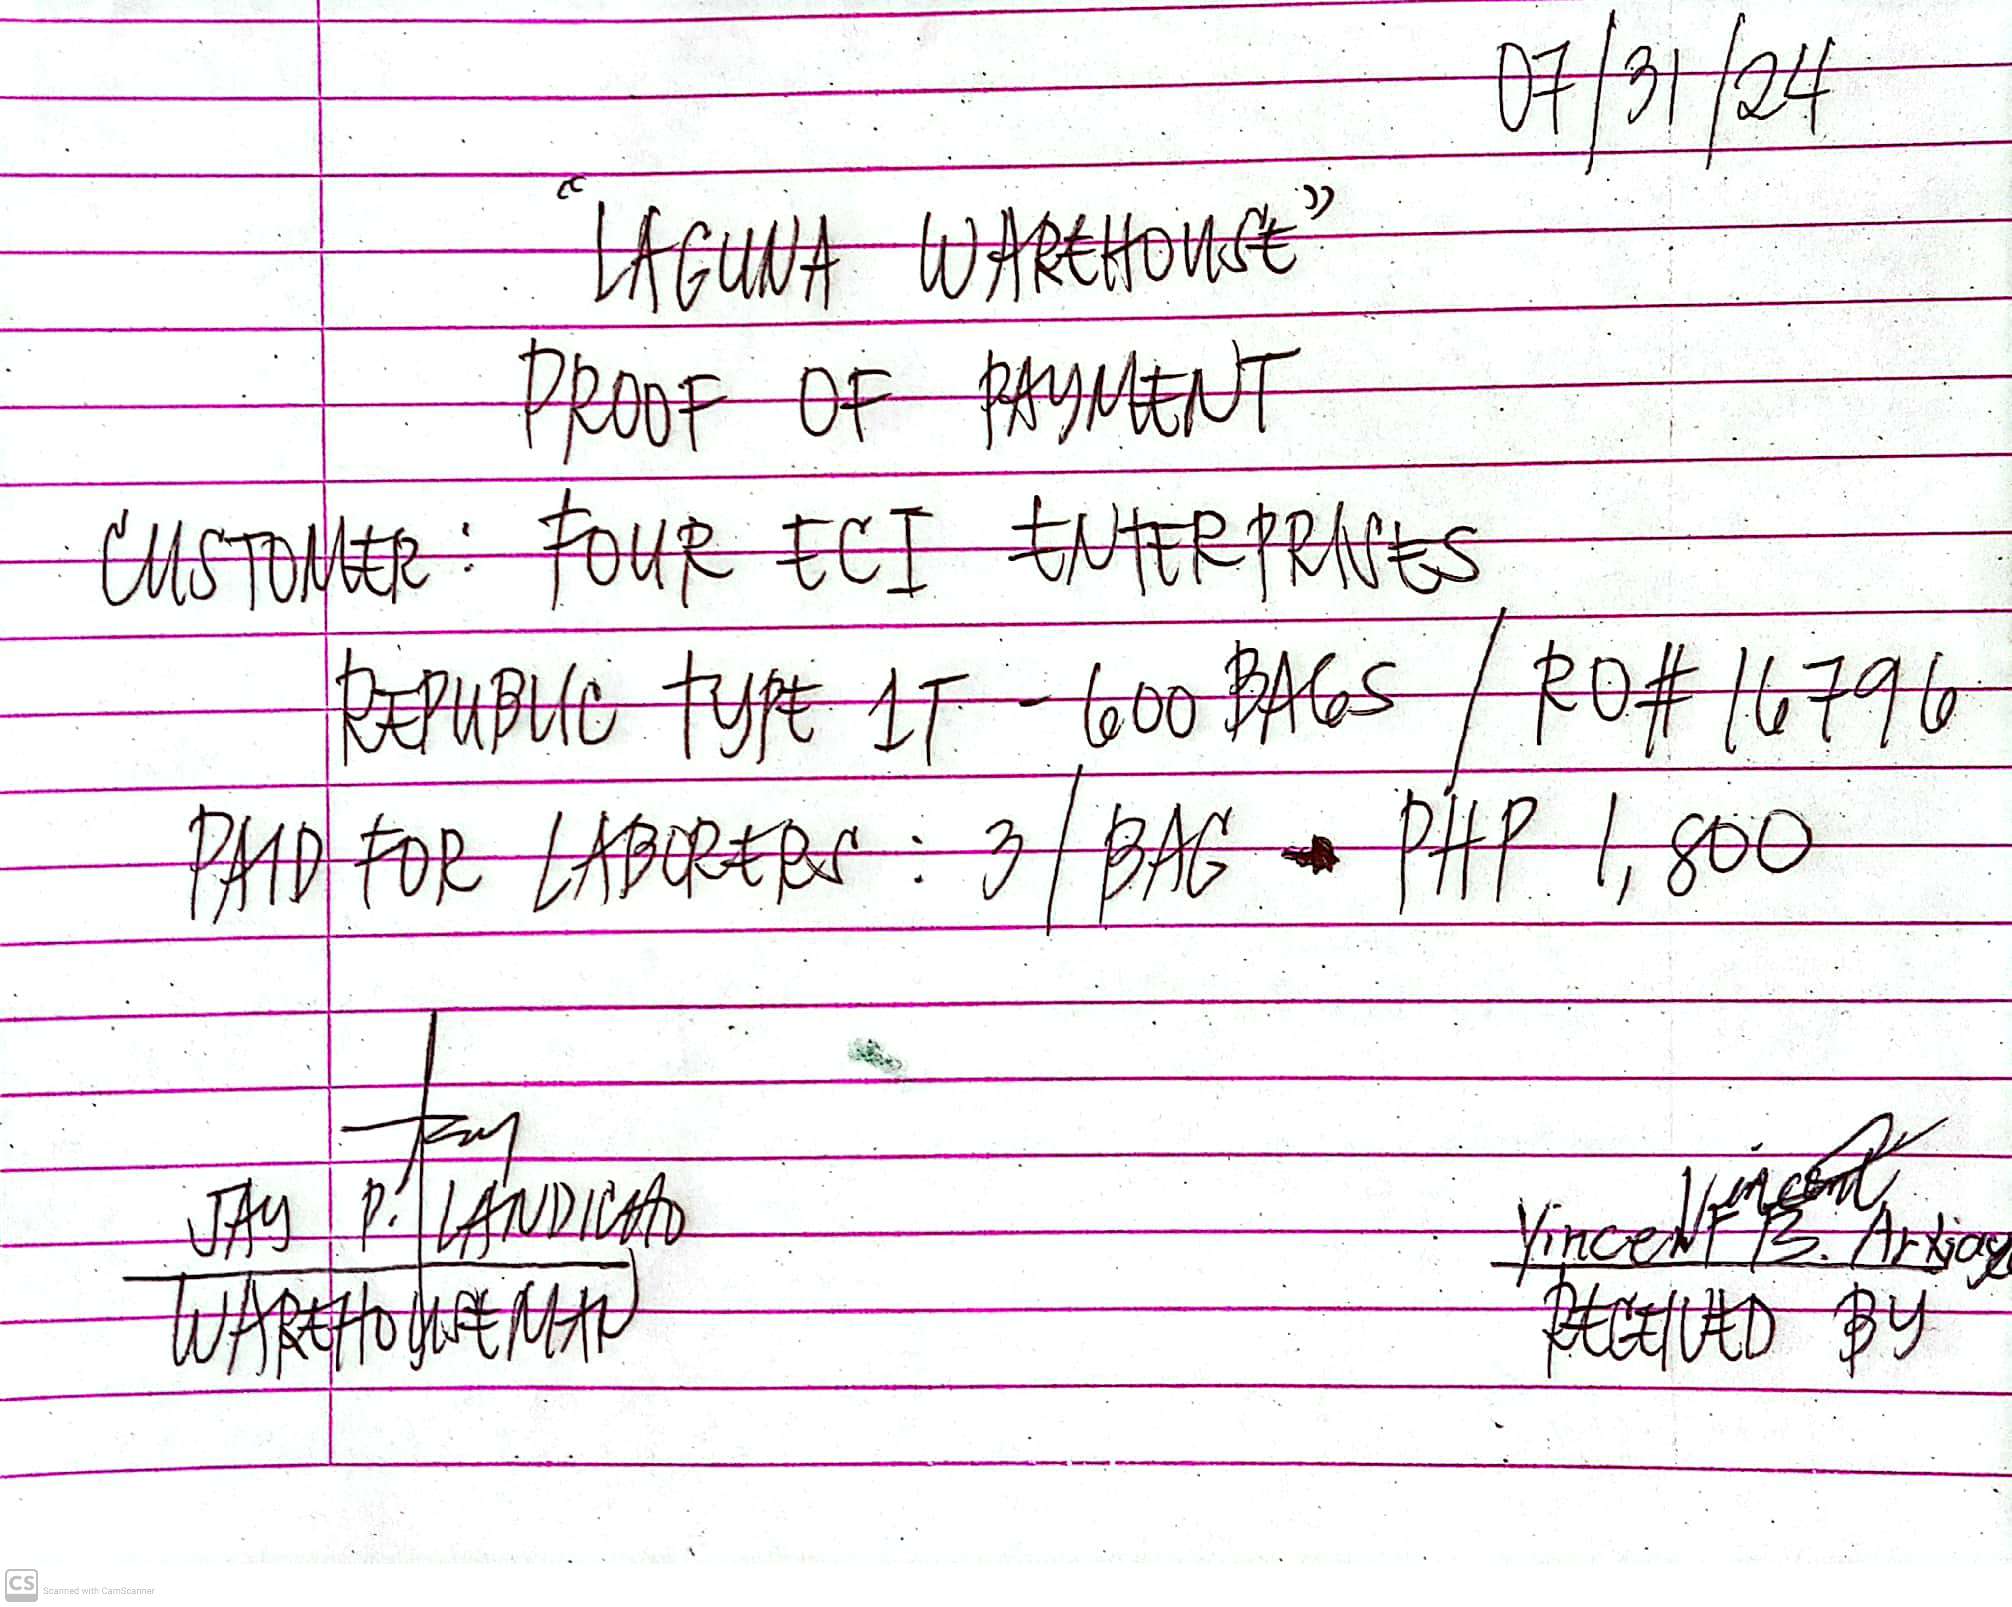 07/31/24
"LAGUNA WAREHOUSE"
PROOF OF PAYMENT
CUSTOMER: FOUR ECI ENTERPRISES
REPUBLIC TYPE 1T - 600 BAGS / RO# 16796
PAID FOR LABORERS: 3/BAG PHP 1,800
Jay
JAY P. LANDICHO
Vincent
Vincent B.
WAREHOUSEMAN
RECEIVED BY
CS Scanned with CamScanner